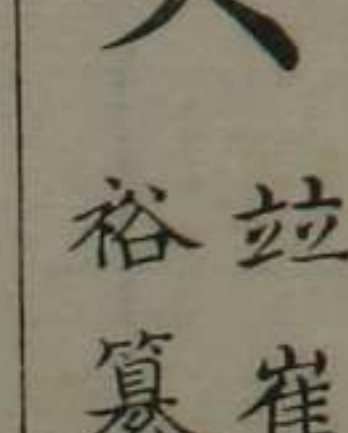 竝崔
裕纂